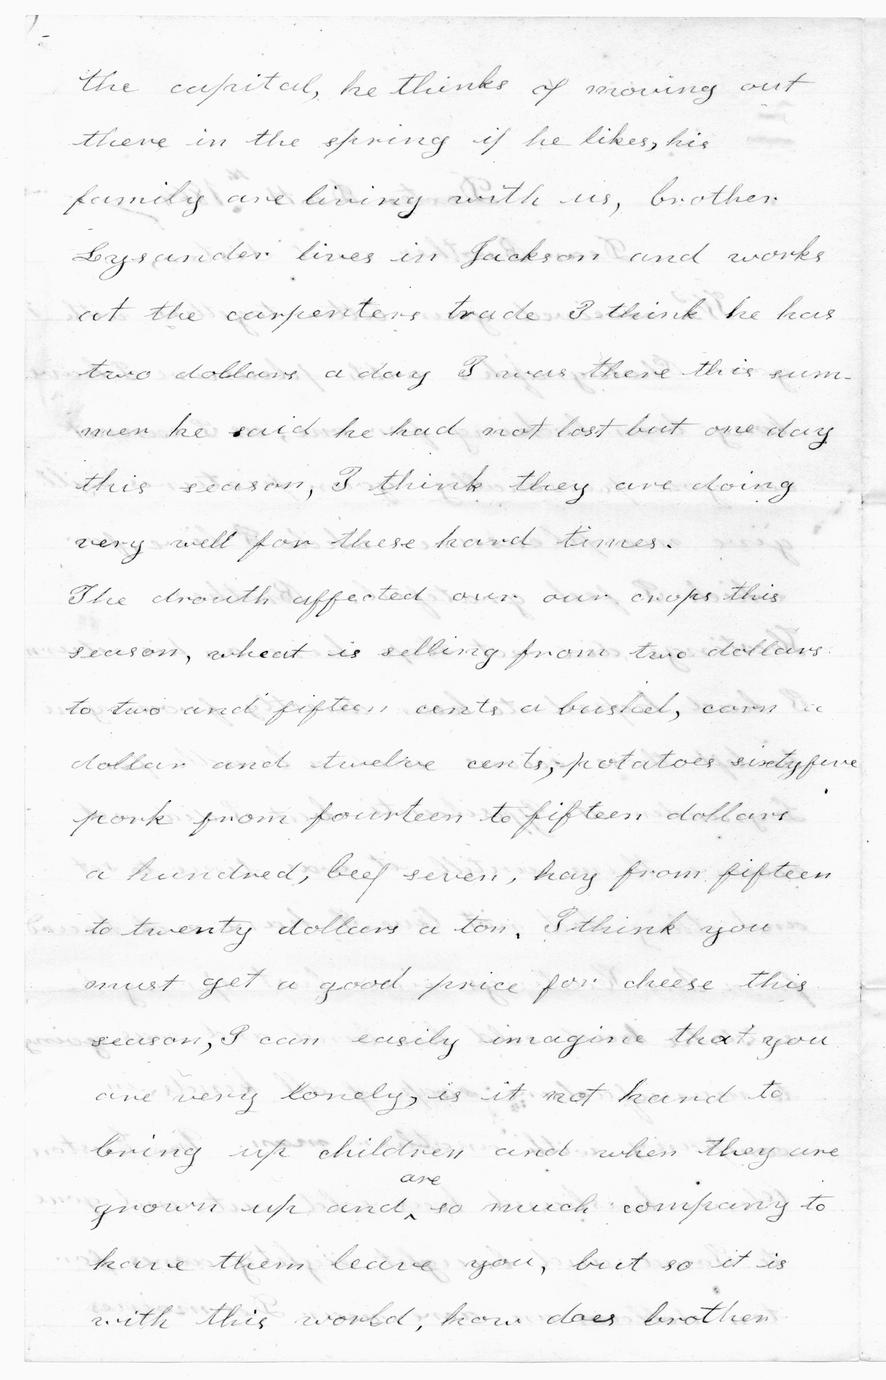 the capital, he thinks of moving out
there in the spring if he likes, his
family are living with us, brother
Lysander lives in Jackson and works
at the carpenters trade I think he has
two dollars a day I was there this sum-
mer he said he had not lost but one day
this season, I think they are doing
very well for these hard times.
The drouth affected our our crops this
season, wheat is selling from two dollars
to two and fifteen cents a bushel, corn a
dollar and twelve cents, potatoes sixtyfive
pork from fourteen to fifteen dollars
a hundred, beef seven, hay from fifteen
to twenty dollars a ton. I think you
must get a good price for cheese this
season, I can easily imagine that you
are very lonely, is it not hard to
bring up children and when they are
are
grown up and ‸ so much company to
have them leave you, but so it is
with this world, how does brother